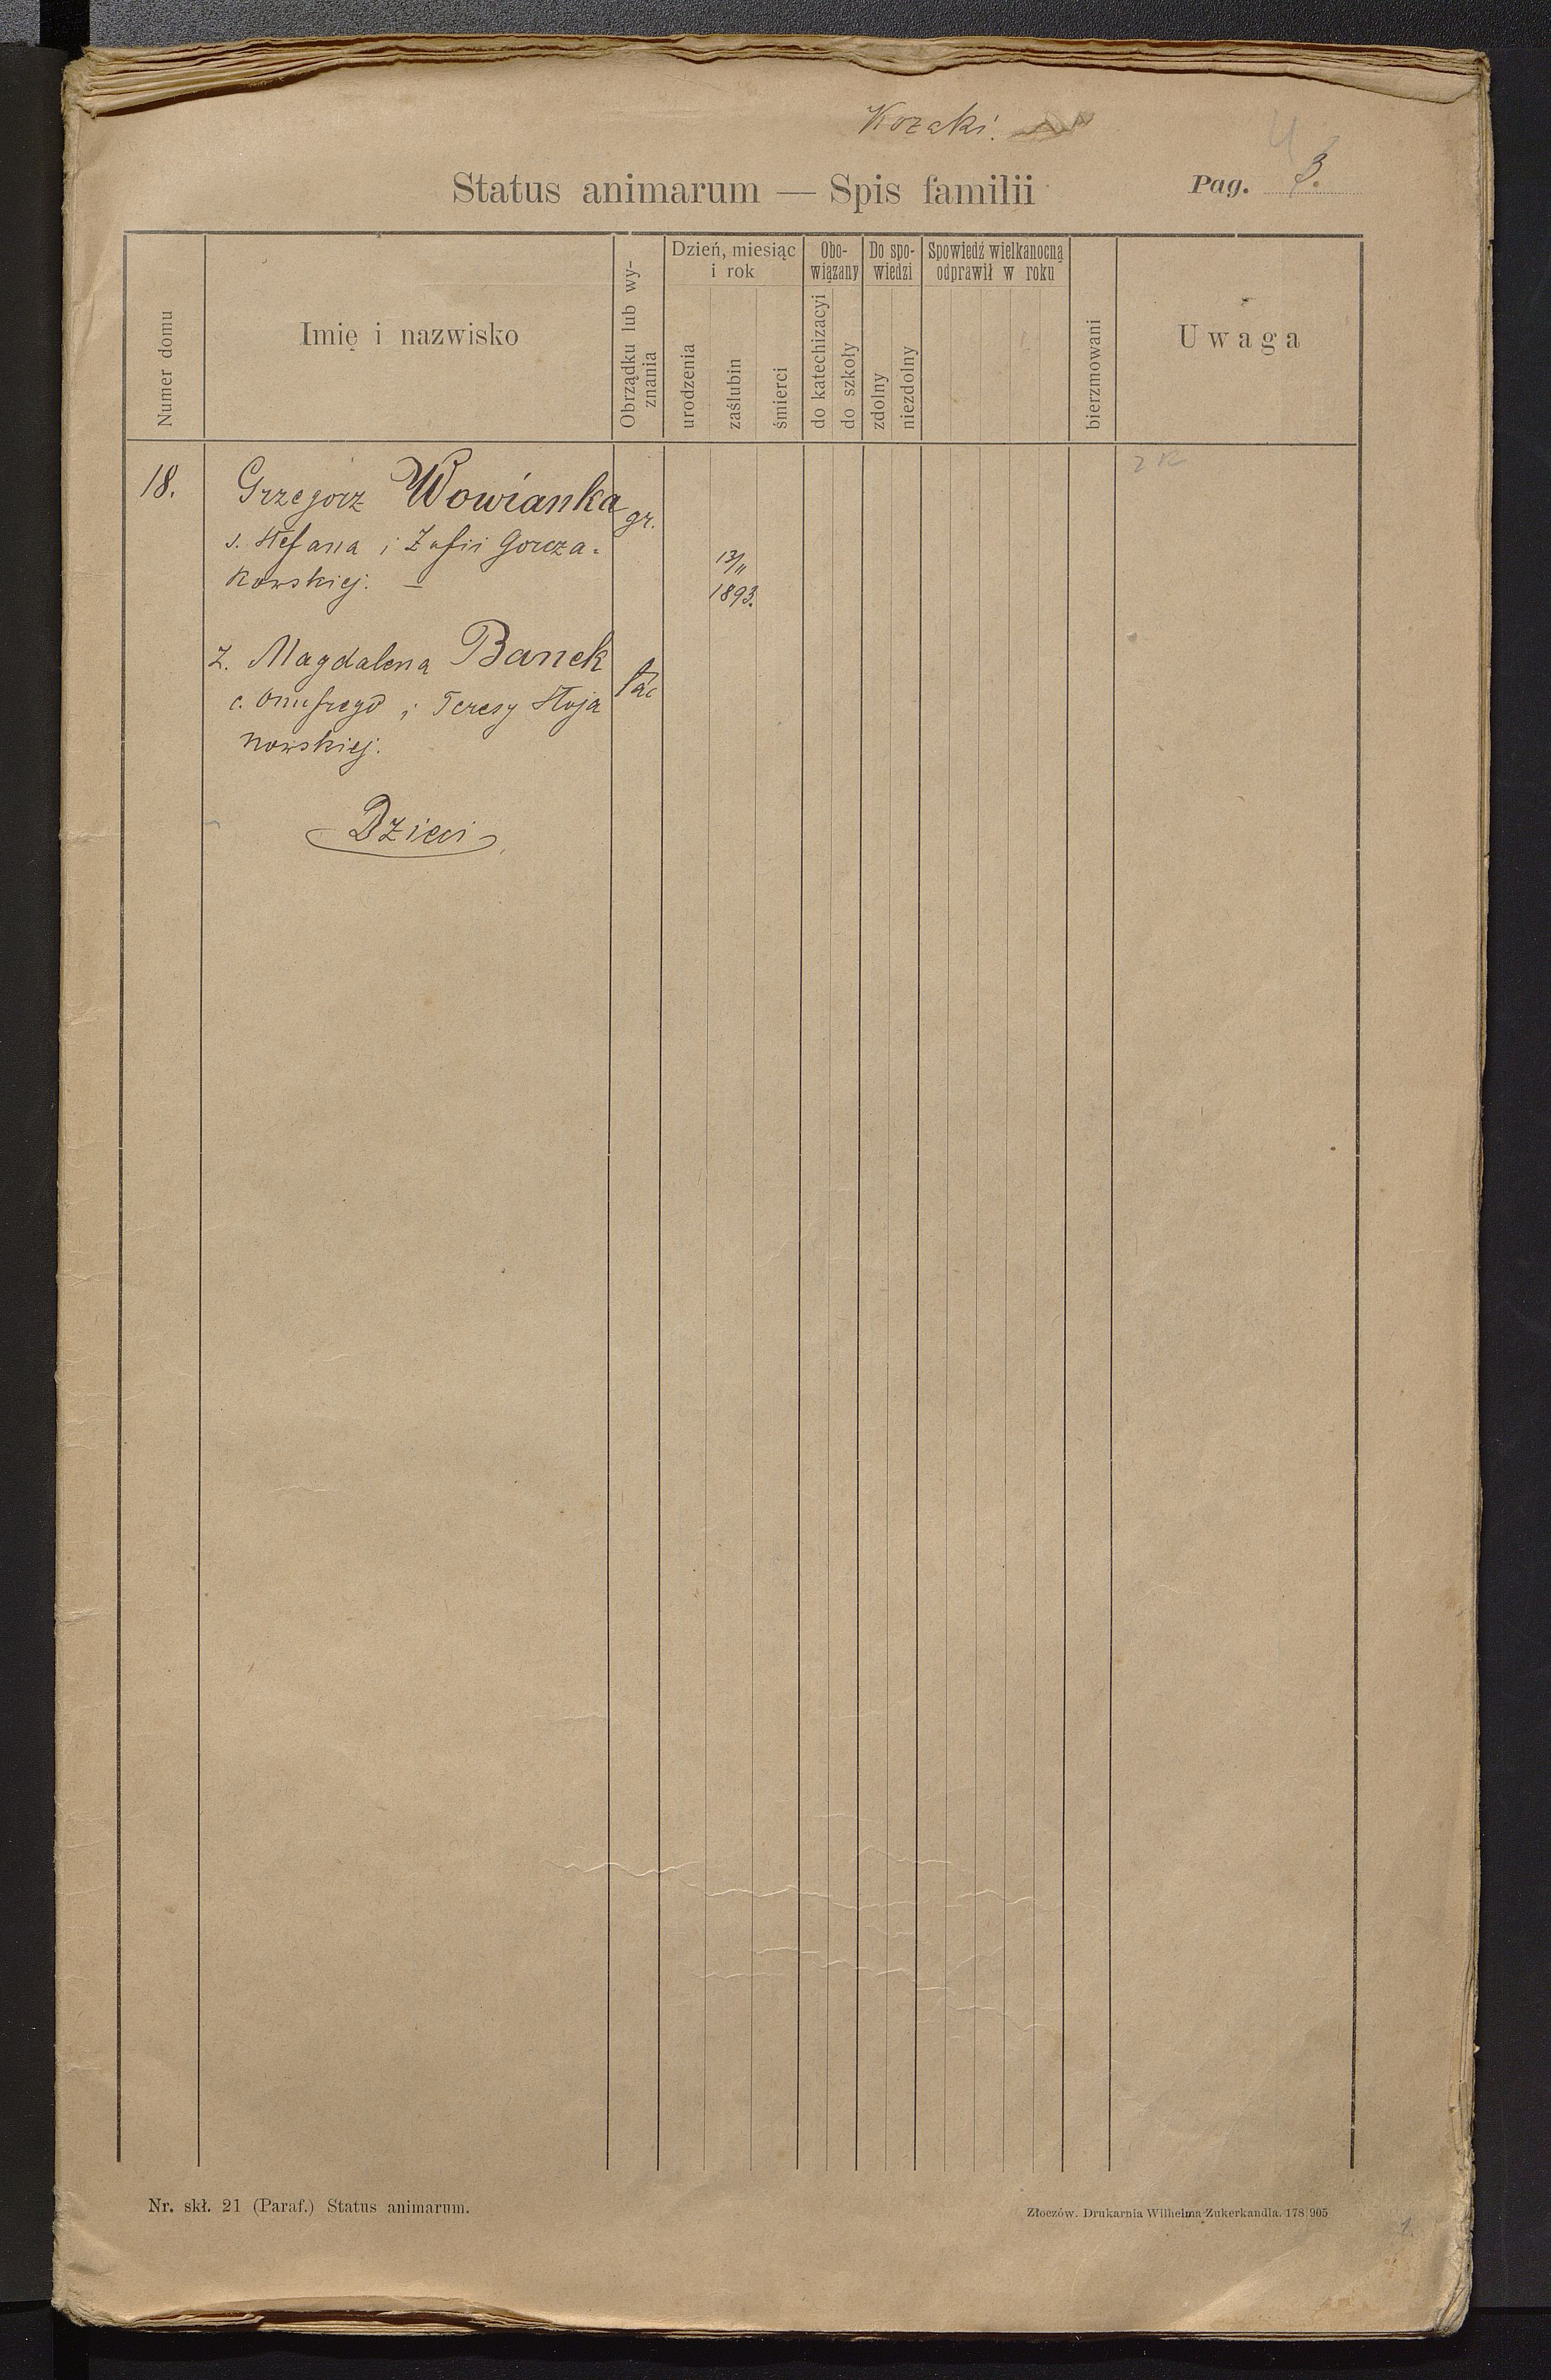 Kozaki.
Status animarum — Spis familii
Pag. 3.
Numer domu
Imię i nazwisko
Obrządku lub wy-
znania
Dzień, miesiąc
i rok
urodzenia
zaślubin
śmierci
Obo-
wiązany
do katechizacyi
do szkoły
Do spo-
wiedzi
zdolny
niezdolny
Spowiedź wielkanocną
odprawił w roku
bierzmowani
Uwaga
18.
Grzegorz Wowianka gr.
s. Stefana i Zofii Gorcza-
kowskiej. —
13/11
1893.
ż. Magdalena Banek łać
c. Onufrego i Teresy Stoja
nowskiej.
Dzieci
Nr. skł. 21 (Paraf.) Status animarum.
Złoczów. Drukarnia Wilhelma Zukerkandla. 178 905
1.